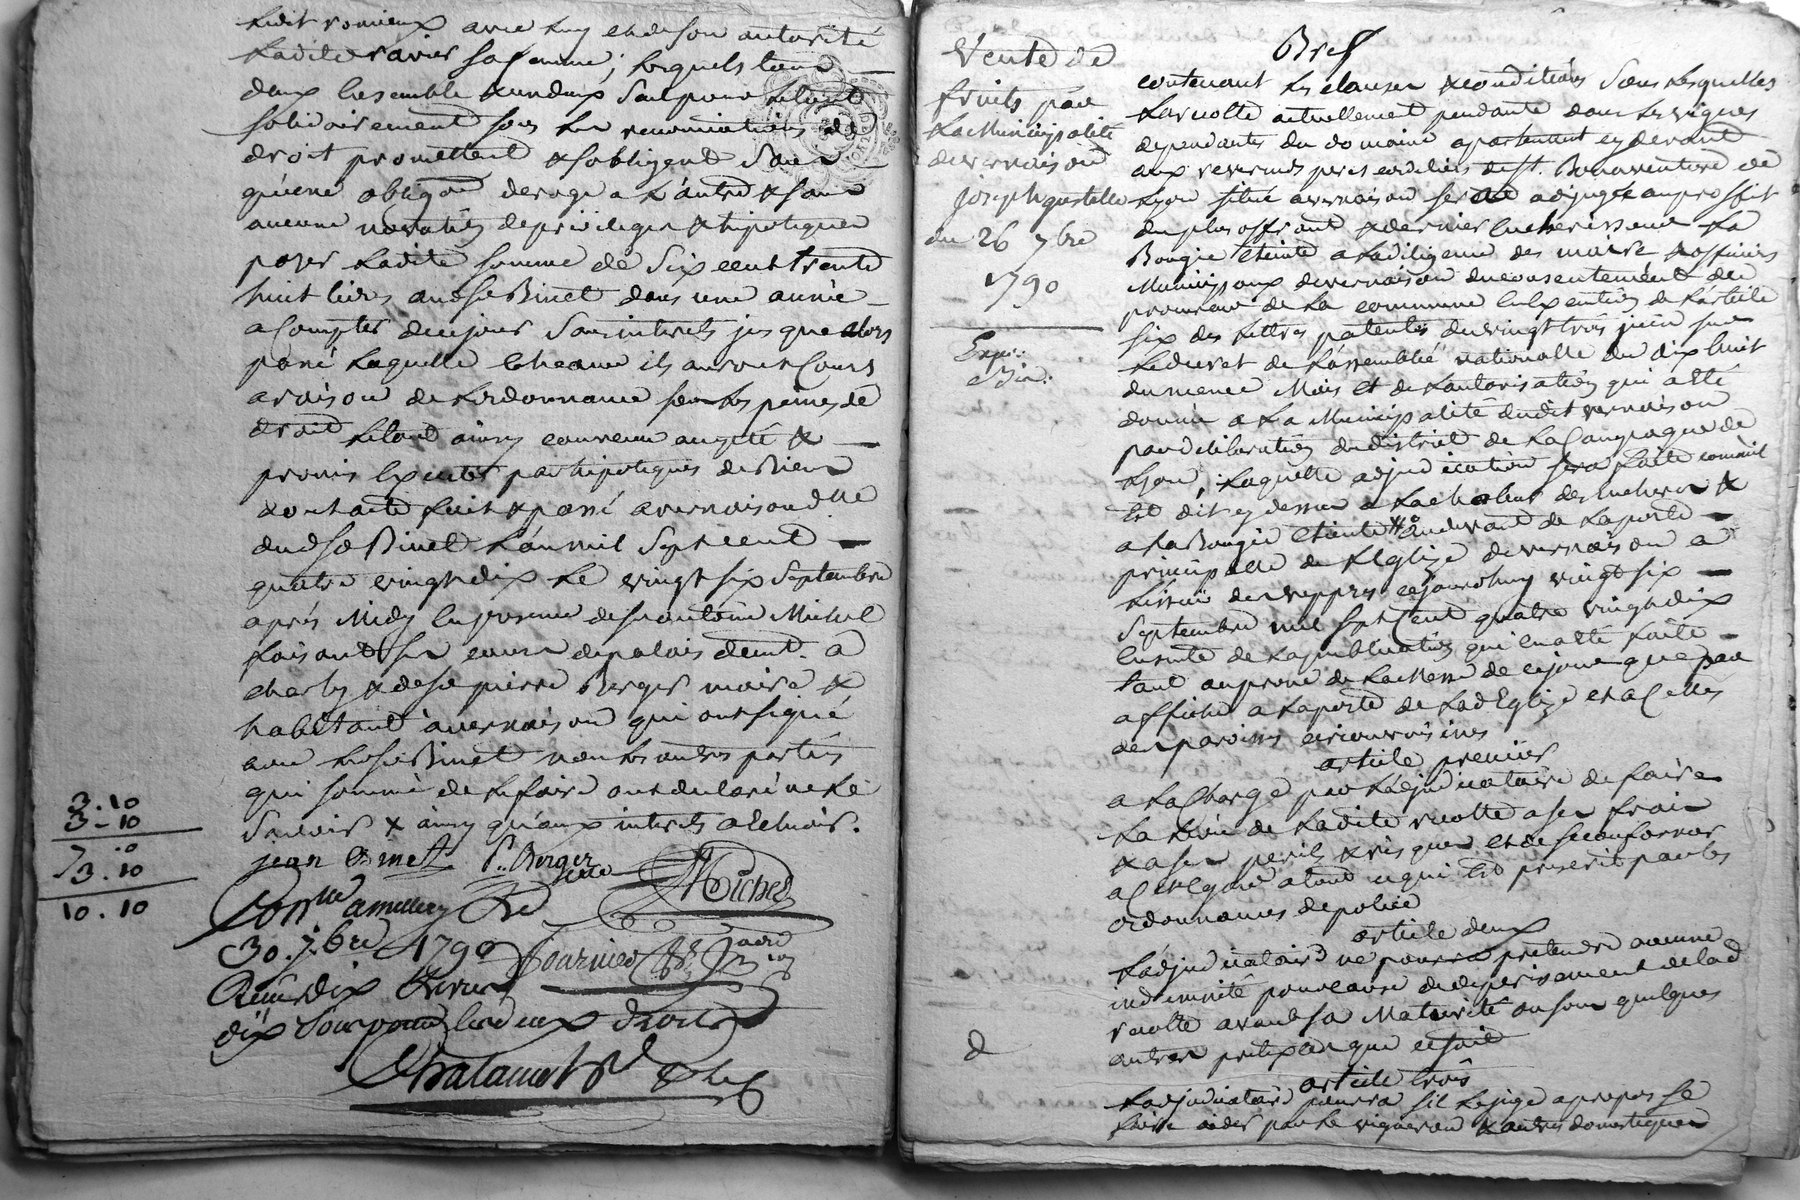 ledit romieux avec luy et de son autorité
ladite ravier sa femme ; lesquels tous
deux ensemble un deux seul pour le tout
solidairement sous les renonciations de
droit promettent & s'obligent sans
qu'une obligaõn deroge a l'autre & sans
aucune novatiõn de privileges & hipoteques
payer ladite somme de six cent trente
huit livres audsr Binet dans une année
a Compter de ce jour sans interets jusque alors
passé laquelle echeance ils auront Cours
a raison de l'ordonnance sous les peines de
droit le tout ainsy convenu accepté &
promis executer par hipoteques de biens
dont acte fait & passé a vernaison dlle
dud sr Binet l'an mil sept cent
quatre vingt dix le vingt six septembre
après Midy en presence de sr antoine Michel
faisant ses cours de palais demt. a
charly & de sr pierre Berger maire &
habitant a vernaison qui ont signé
avec led sr Binet non les autres parties
qui sommé de le faire ont declaré ne le
savoir & ainsy qu'aux interets a echeoir.
jean Binet P. Berger
Michel
3 . 10
3 - 10
7 . 0
3 . 10
10 . 10
Conlle a millery le
30. 7bre 1790
Reçu dix livres
dix sous pour les deux droits
Fournier
Chatainet
Bref
Vente de
fruits par
La Municipalité
de vernaison
joseph gustelle
du 26 7bre
1790
Exp.
contenant les clauses & conditions sous lesquelles
la recolte actuellement pendante dans les vignes
dependantes du domaine apartenant cy devant
aux reverends peres cordeliers de st. Bonaventure de
Lyon situé a vernaison sera adjugée au proffit
du plus offrant & dernier encherisseur a la
Bougie eteinte a la diligence des maire & officiers
Municipaux de vernaison du consentement du
procureur de la commune en Execution de l'article
six des lettres patentes du vingt trois juin sur
le decret de l'assemblée nationalle du dix huit
du meme Mois et de l'autorisatiõn qui a été
donnée a la Municipalité dudit vernaison
par deliberatiõn du district de la Campagne de
Lyon ; laquelle adjudication sera faite comme il
est dit cy dessus a la chaleur des encheres &
a la Bougie eteinte au devant de la porte
principalle de l'Eglize de vernaison a
l'issue des veppres ce jourdhuy vingt six
septembre mil sept Cent quatre vingt dix
ensuite de la publicatiõn qui en a été faite
tant au prone de la messe de ce jour que par
affiche a la porte de lad Eglize et a Celles
des paroisses circonvoisines
article premier
a la Charge par l'adjudicataire de faire
la levée de ladite recolte a ses frais
& a ses perils & risques et de se conformer
a Cet Egard a tout ce qui est prescrit par les
ordonnances de police
article deux
L'adjudicataire ne pourra pretendre aucune
indemnité pour cause de deperissement de lad
recolte avant sa Maturité ou sous quelques
autres pretextes que ce soit
d
article trois
L'adjudicataire pourra s'il le juge a propos se
faire aider par le vigneron & autres domestiques